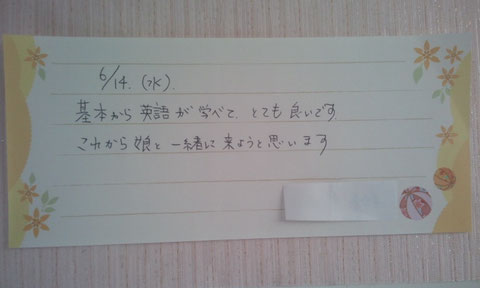 6/14.(水).
基本から 英語が 学べて、とても 良いです。
これから 娘と 一緒に 来ようと思います